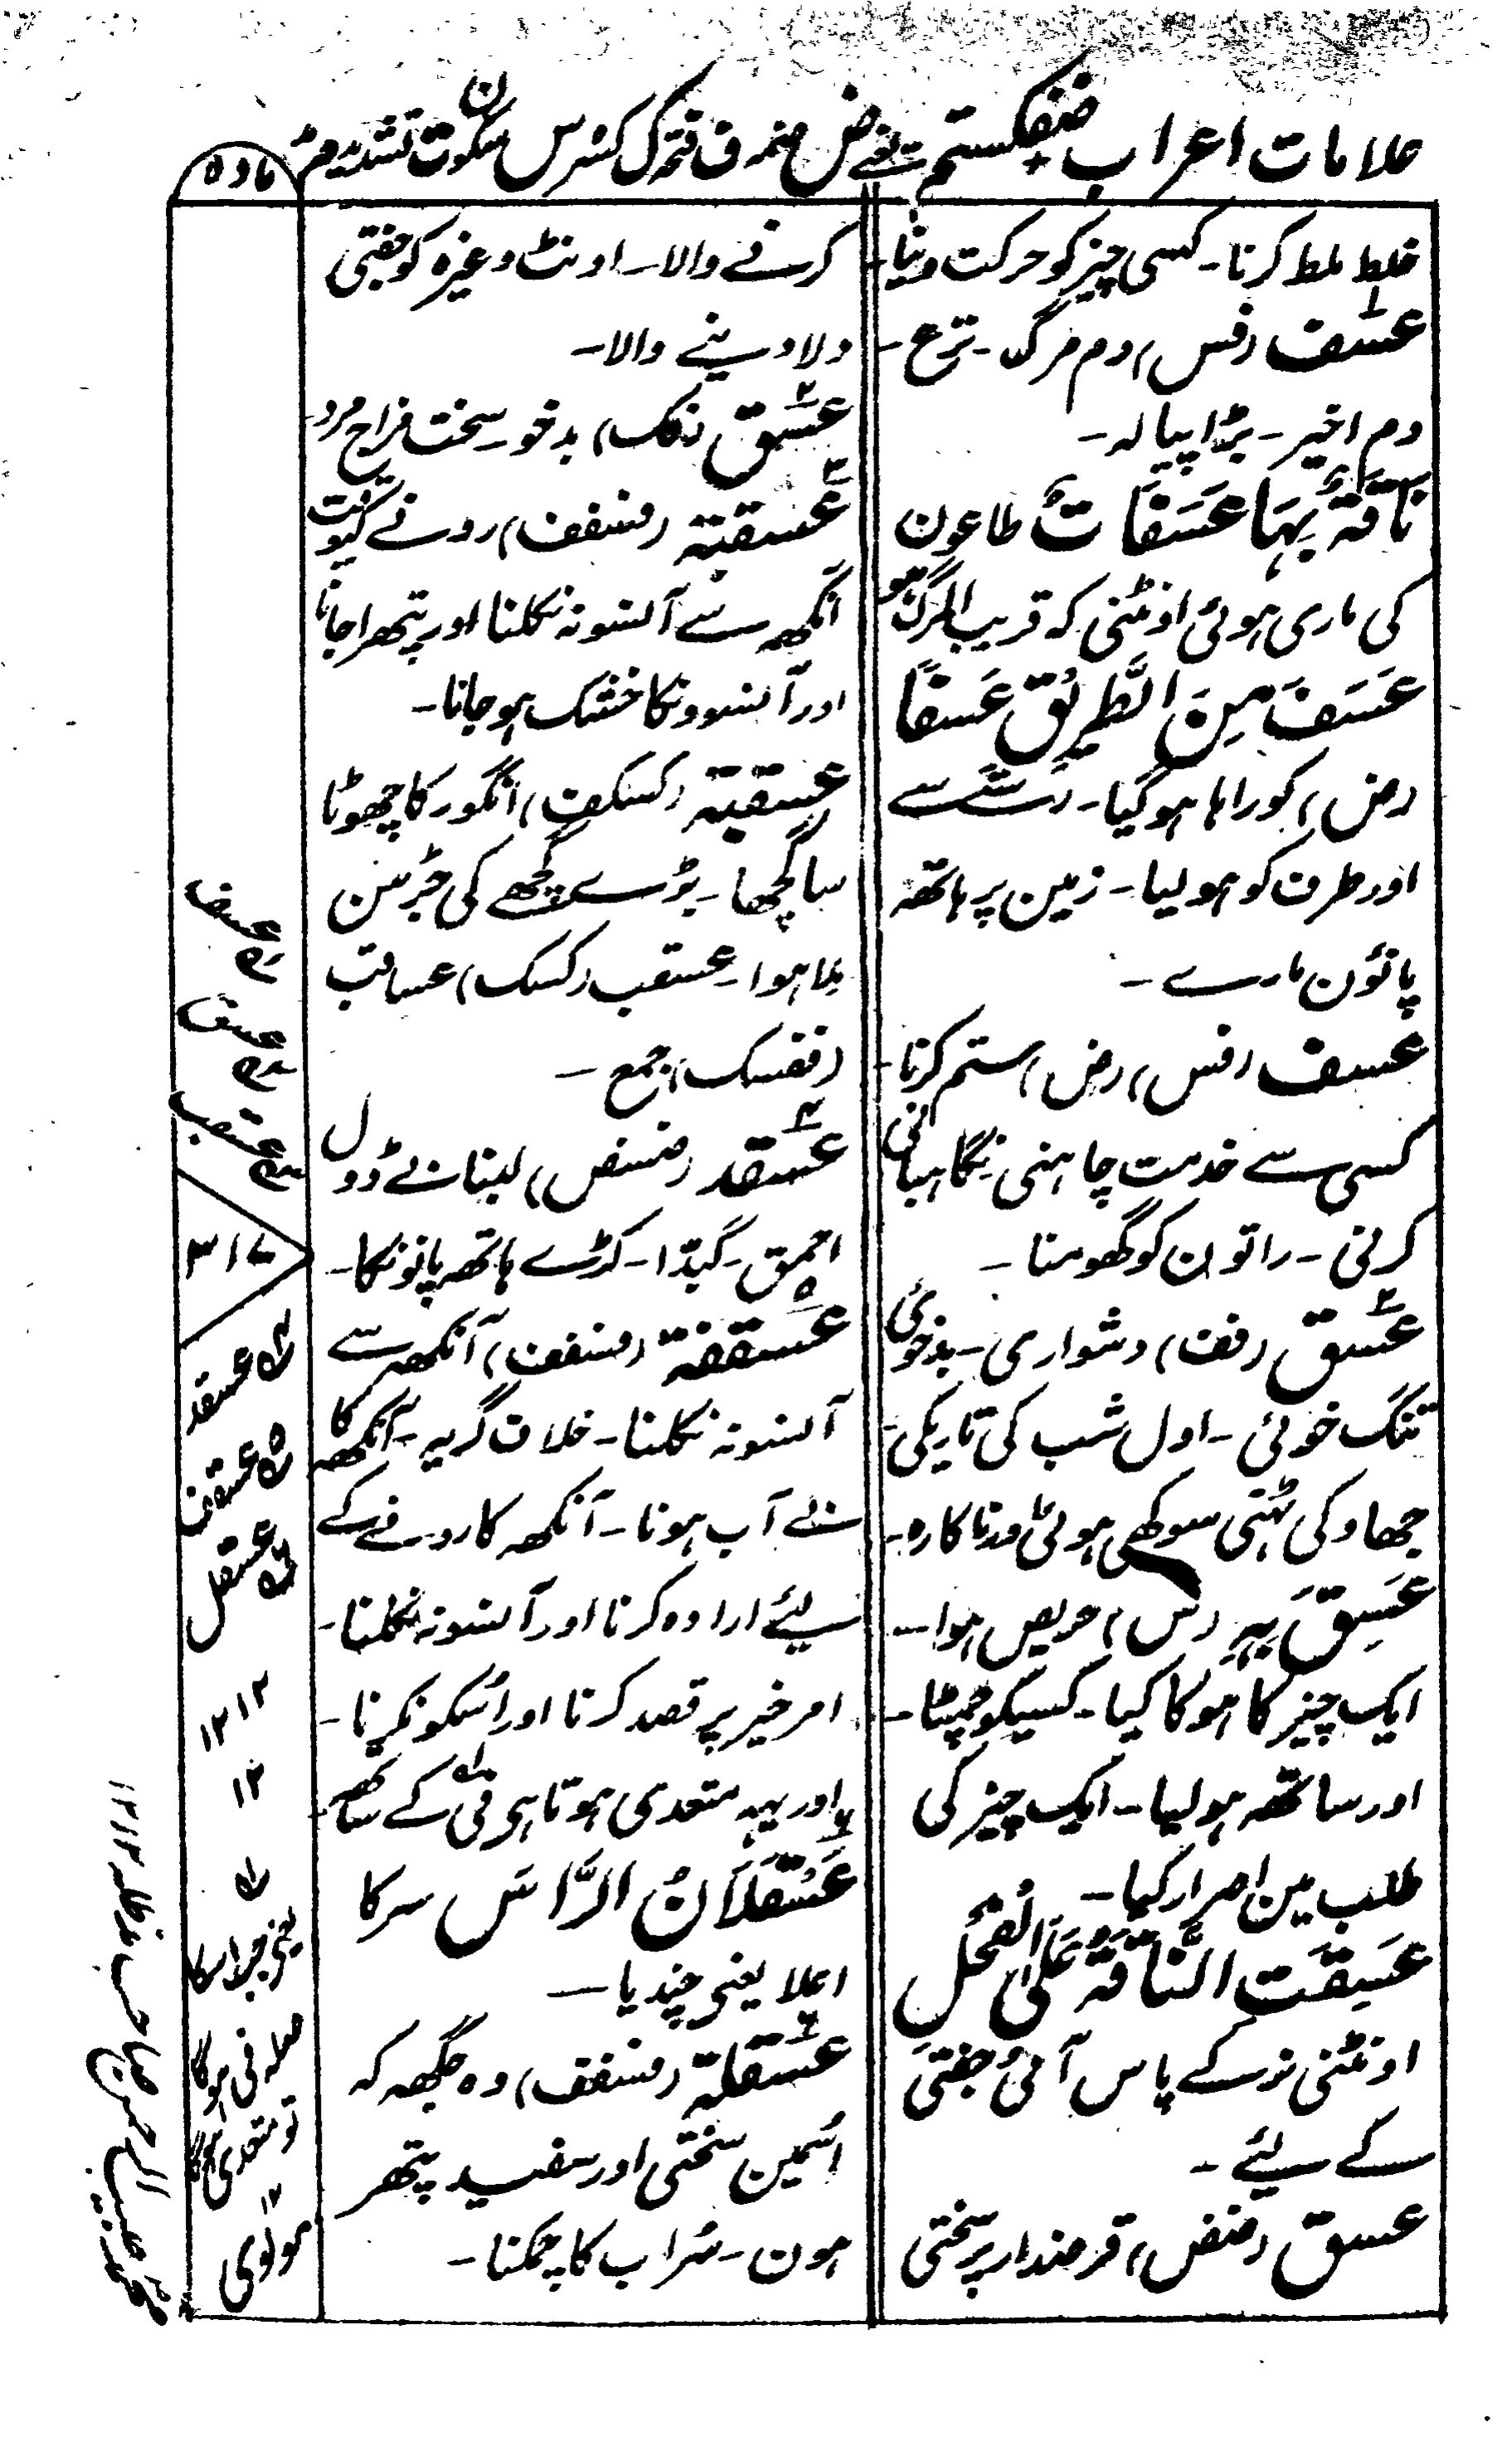 علامات اعراب ضفکستم سے یعنے ض ضمہ ف فتحہ ک کسرہ س سکون ت تشدید م مد
مادہ
خلط ملط کرنا۔ کسی چیز کو حرکت دینا۔
عسف (فس) دم مرگ۔ نزع۔
دم اخیر۔ بڑا پیالہ۔
نَاقَۃٌ بِہَا عَسَفَاتٌ طاعون
کی ماری ہوئی اونٹنی کہ قریب المرگ ہو
عَسَفَ مِنَ الطَّرِیْقِ عَسفًا
(ض) کوراہا ہو گیا۔ رستے سے
اور طرف کو ہو لیا۔ زمین پر ہاتھ
پانؤن مارے۔
عسف (فس) (ض) ستم کرنا۔
کسی سے خدمت چاہنی نگاہبانی
کرنی۔ راتون کو گھومنا۔
عسق (فف) دشواری۔ بدخوئی
تنگ خوئی۔ اول شب کی تاریکی۔
جھاو کی ٹہنی سوکھی ہوئی و ناکارہ۔
عَسِقَ بِہِ (س) حریص ہوا۔
ایک چیز کا ہوکا کیا۔ کسیکو چمٹا۔
اور ساتھ ہو لیا۔ ایک چیز کی
طلب مین اصرار کیا۔
عَسِقَتِ النَّاقَۃُ عَلَی الْفَحْلِ
اونٹنی نر کے پاس آئی جفتی
کے لیئے۔
عسق (ضفض) قرضدار پر سختی
کرنے والا۔ اونٹ وغیرہ کو جفتی
دلا دینے والا۔
عسق (فک) بدخو۔ سخت مزاج مرد
عسقبۃ (فسفف) رونے کیوقت
آنکھ سے آنسو نہ نکلنا اور پتھرا جانا
اور آنسوونکا خشک ہو جانا۔
عسقبۃ (کسکف) انگور کا چھوٹا
سا گچھا۔ بڑے گچھے کی جڑ مین
ملا ہوا۔ عسقب (کسک) عساقب
(ففسک) جمع۔
عسقد (ضسض) لبنا بے ڈول
احمق۔ گبدّا۔ کڑے ہاتھ پانونکا۔
عسقفۃ (فسفف) آنکھ سے
آنسو نہ نکلنا۔ خلاف گریہ۔ آنکھ کا
بے آب ہونا۔ آنکھ کا رونے کے
لیئے ارادہ کرنا اور آنسو نہ نکلنا۔
امر خیر پر قصد کرنا اور اسکو نکرنا۔
اور یہہ متعدی ہوتا ہی فی کے ساتھ۔
عَسْقَلَانُ الرَّاسِ سر کا
اعلا یعنی چندیا۔
عسقلۃ (فسفف) وہ جگہہ کہ
اسمین سختی اور سفید پتھر
ہون۔ سراب کا چمکنا۔
عسف
عسق
عسقب
۳۱۷
عسقد
عسقف
عسقل
۱۲ ۱۲
۱۲
یعنی جب اسکا
صلہ فی ہوگا
تو متعدی ہوگا
۱۲
مولوی